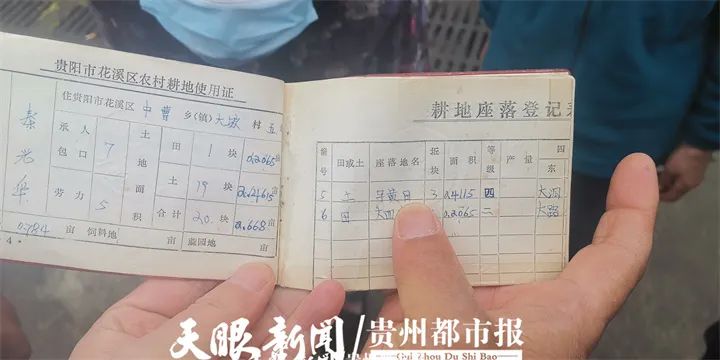 贵阳市花溪区农村耕地使用证
住贵阳市花溪区 中曹 乡(镇) 大坡 村 五
秦光华
承包 人口 7 土地面积 田 1 块 0.2065 亩
劳力 5 土 19 块 亩
合计 20 块 亩
0.784 亩 饲料地 亩 蔬园地 亩
4
耕地座落登记
编号 田或土 座落地名 坵块 面积 等级 产量 四
东
5 土 3 0.4115 四 大洞
6 田 大 0.2065 二 大路
天眼新闻 贵州都市报
Gui Zhou Du Shi Bao